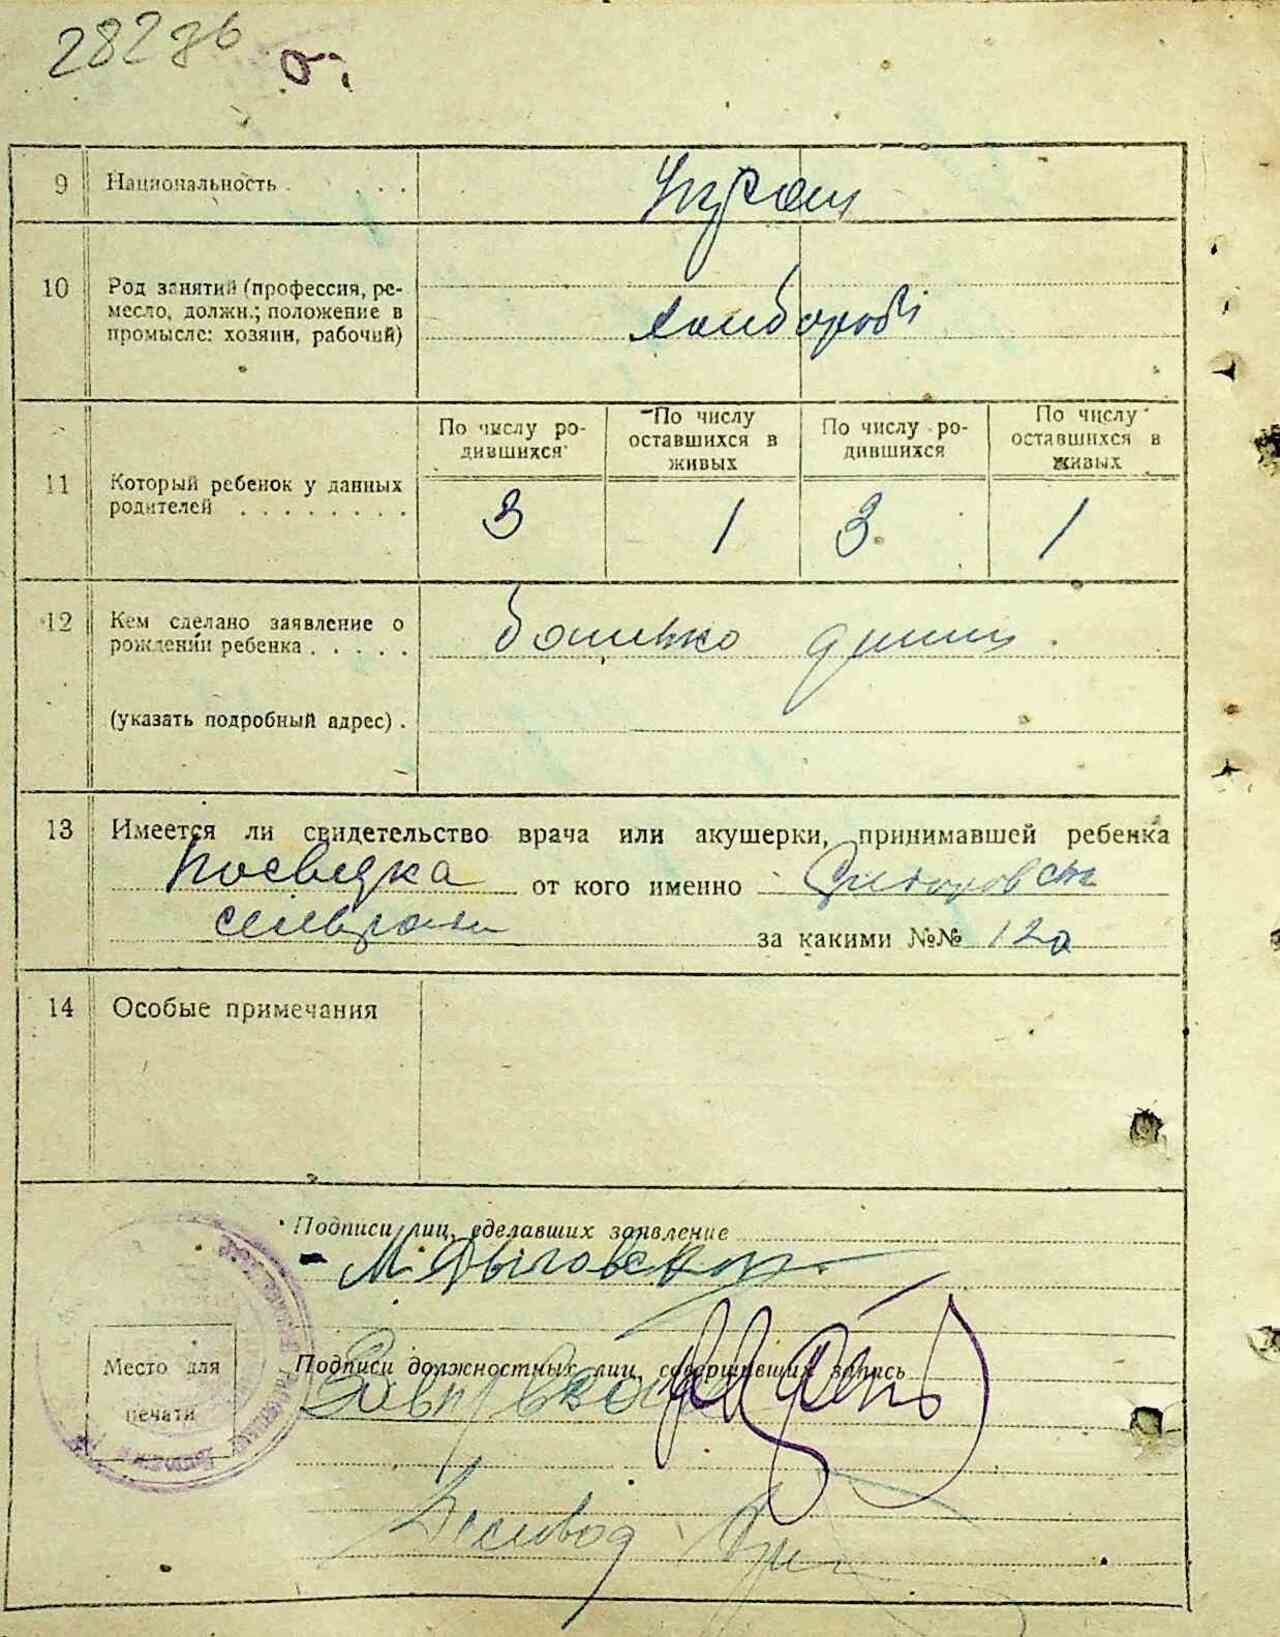 9 Национальность . . . .
Украін
10 Род занятий (профессия, ре-
месло, должн.; положение в
промысле: хозяин, рабочий)
хлібороби
По числу ро-
дившихся
По числу
оставшихся в
живых
По числу ро-
дившихся
По числу
оставшихся в
живых
11 Который ребенок у данных
родителей . . . . . . . .
3 1 3 1
12 Кем сделано заявление о
рождении ребенка . . . . .
батько
(указать подробный адрес) .
13 Имеется ли свидетельство врача или акушерки, принимавшей ребенка
посвідка от кого именно
за какими №№ 120
14 Особые примечания
Подписи лиц, сделавших заявление
Подписи должностных лиц, совершивших запись
Место для
печати
Діловод